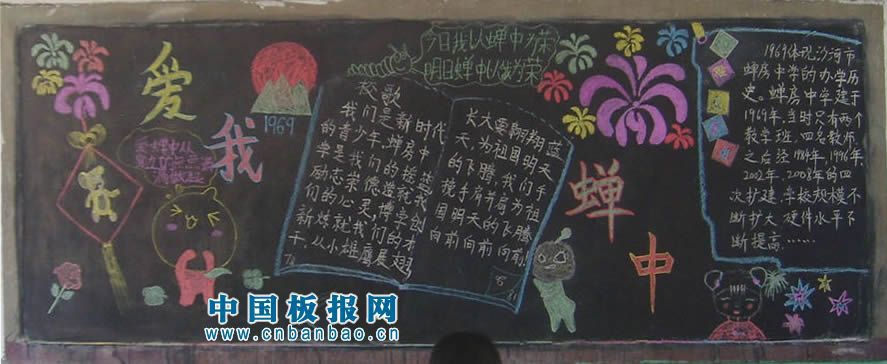 爱
我
蝉
中
今日我以蝉中为荣
明日蝉中以我为荣
1969
爱蝉中从
点点滴
滴做起
校歌
我们是新时代
的青少年,蝉房中
学是我们的校
励志
们的心灵,博学创
新炼就我们的才
干,从小雄鹰展翅,
长大要翱翔蓝
天,为祖国明天
的飞腾,我们手
挽手肩并肩,为祖
国明天的飞腾
向前向前向前!
1969体现沙河市
蝉房中学的办学历
史。蝉房中学建于
1969年,当时只有两个
教学班,四名教师,
之后经1984年,1996年,
2002年,2008年的四
次扩建,学校规模不
断扩大,硬件水平不
断提高……
中国板报网
www.cnbanbao.cn